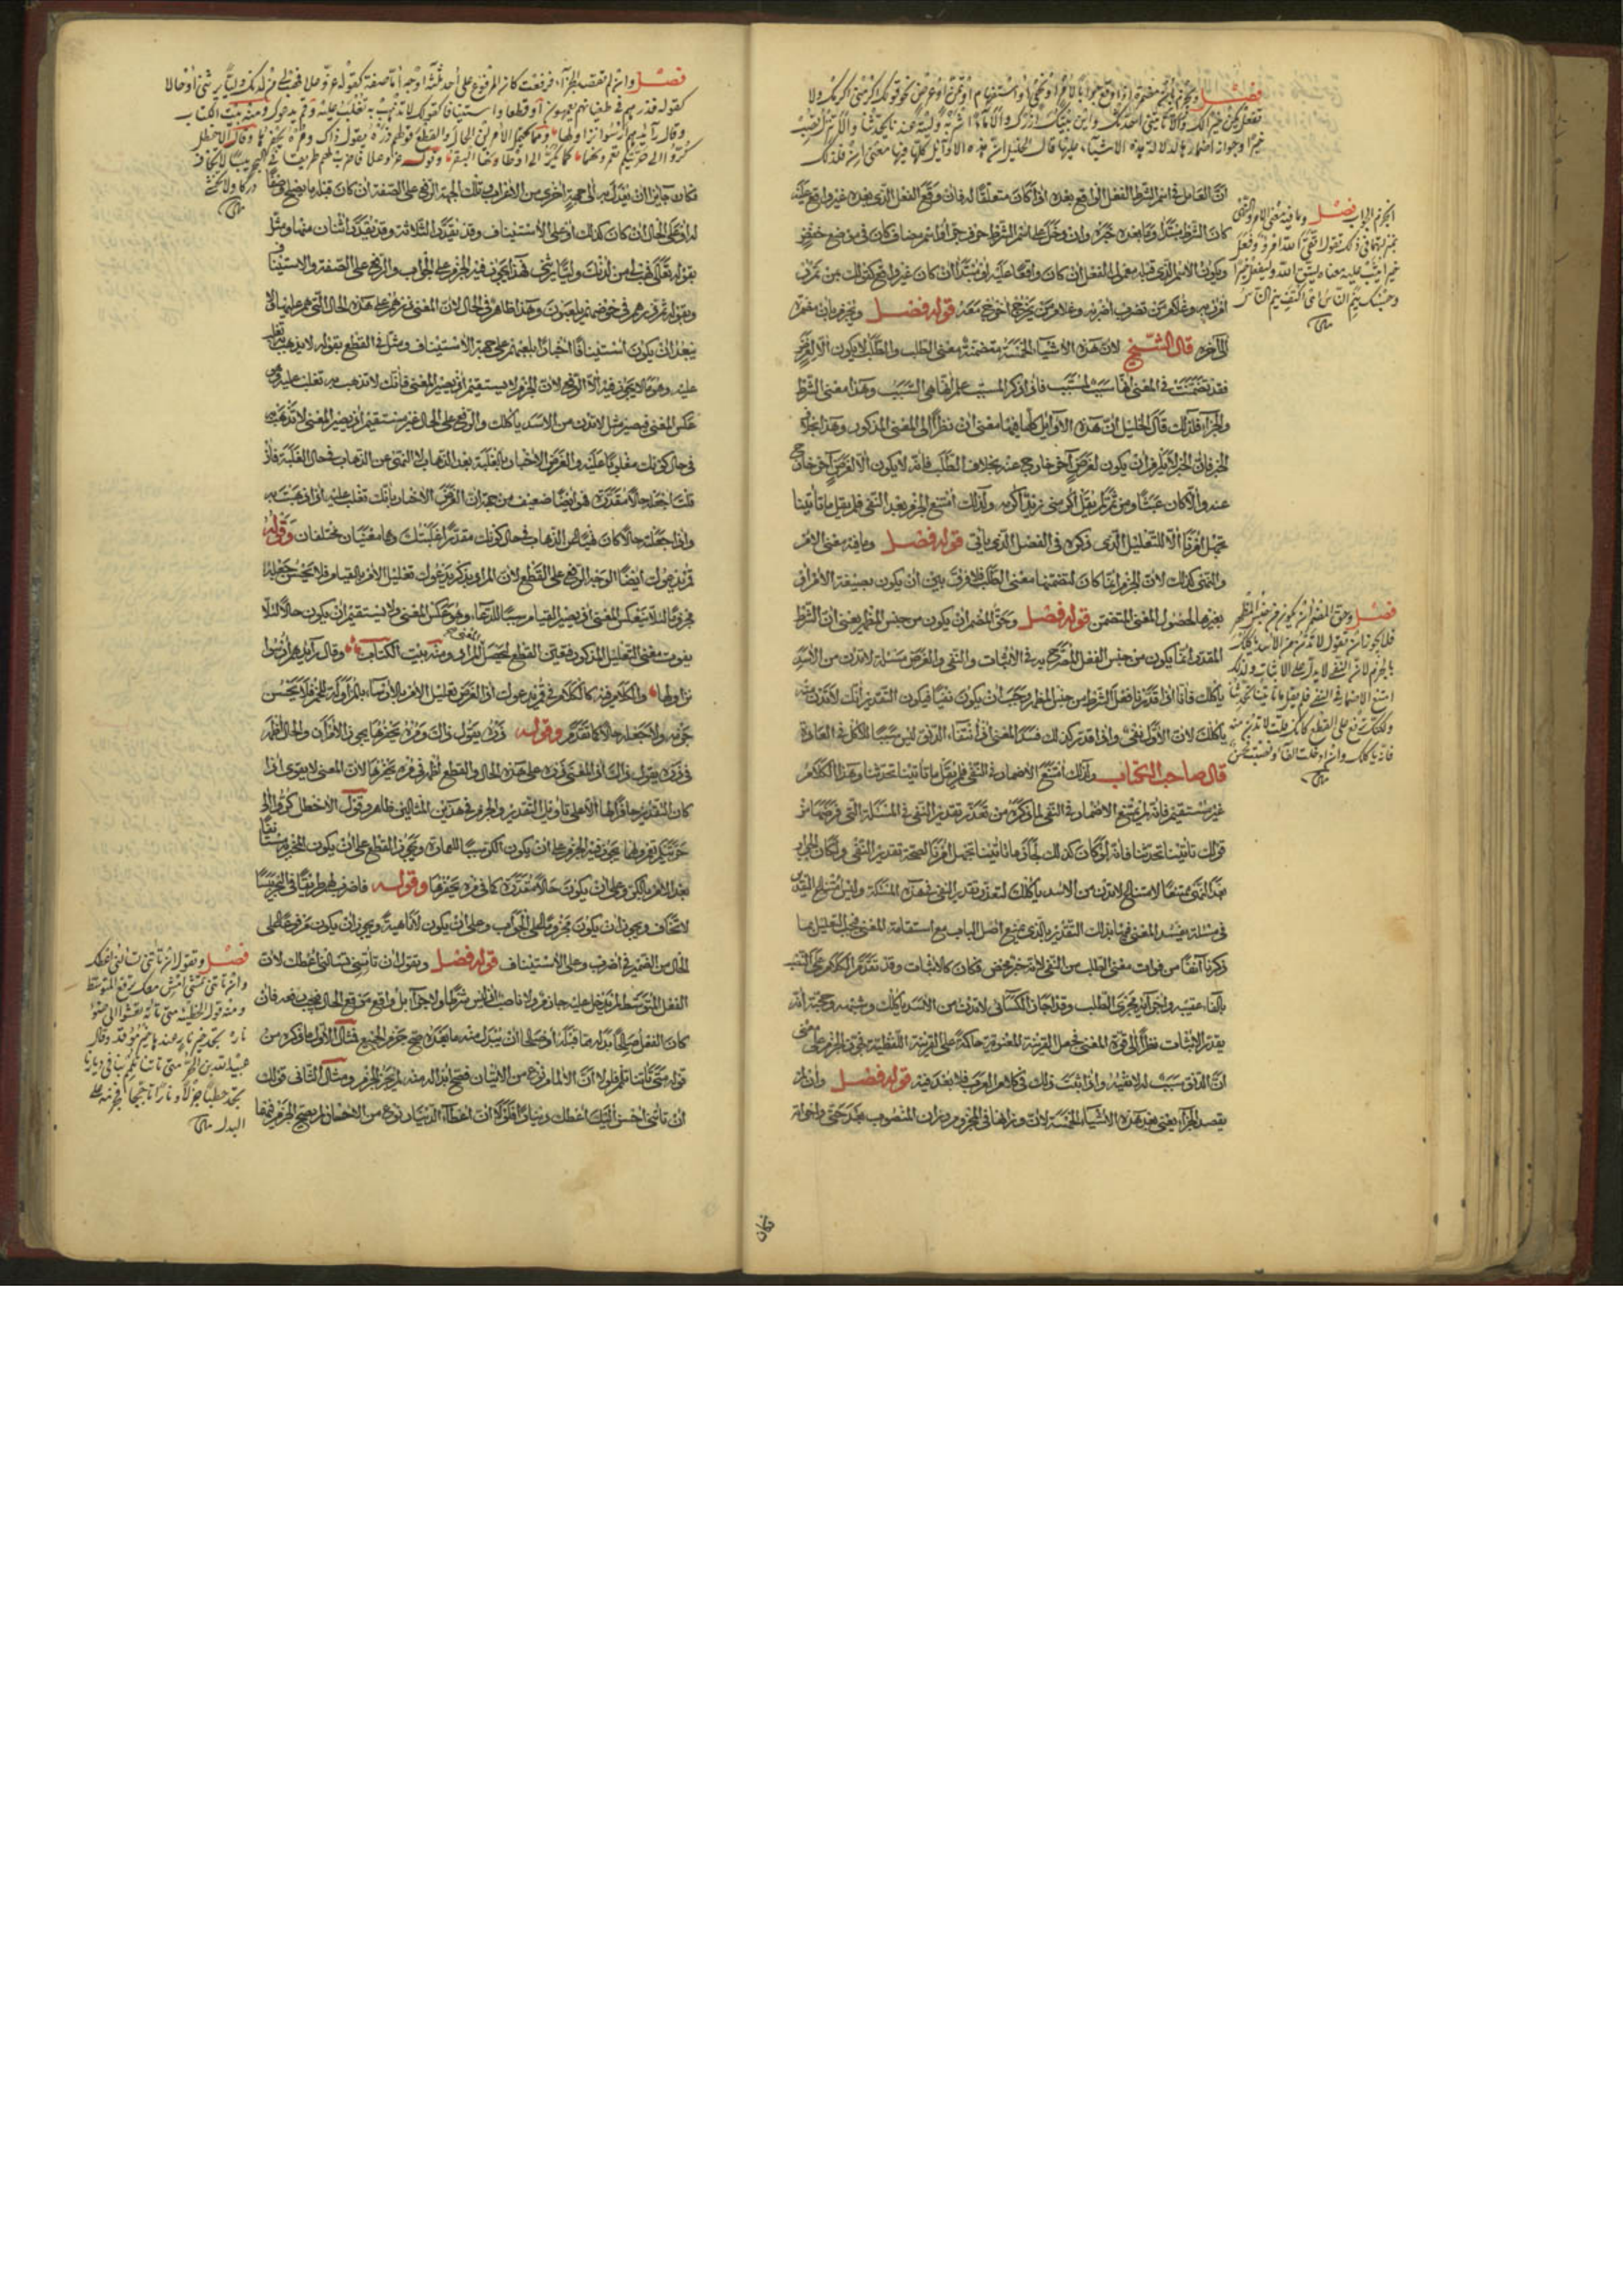 فصل ويجزم بان مضمرة اذا وقع جوابا لامر او نهي او استفهام او تمن او عرض نحو قولك اكرمني اكرمك ولا
تفعل يكن خيرا لك والا تأتني احدثك واين بيتك ازرك والا ماء اشربه وليته عندنا يحدثنا والا تنزل تصب
خيرا وجواز اضمارها لدلالة هذه الاشياء عليها قال الخليل ان هذه الاوائل كلها فيها معنى ان فلذلك
انجزم الجواب فصل وما فيه معنى الامر والنهي
بمنزلتهما في ذلك تقول اتقى الله امرؤ وفعل
خيرا يثب عليه معناه ليتق الله وليفعل خيرا
وحسبك ينم الناس
ان العامل في اسم الشرط الفعل الواقع بعده اذا كان متعلقا له فان وقع الفعل الذي بعده غير واقع عليه
كان الشرط مبتدأ وما بعده خبره وان دخل على اسم الشرط حرف جر او اسم مضاف كان في موضع خفض
ويكون الاسم الذي قبله معمولا للفعل ان كان واقعا عليه او مبتدأ ان كان غير واقع كقولك بمن تمرر
امرر به وغلام من تضرب اضربه وغلام من يخرج اخرج معه قوله فصل ويجزم بان مضمرة
الى آخره قال الشيخ لان هذه الاشياء الخمسة متضمنة معنى الطلب والطلب لا يكون الا لغرض
فقد تضمنت في المعنى انها سبب لمسبب فاذا ذكر المسبب علم انها هي السبب وهذا معنى الشرط
والجزاء فلذلك قال الخليل ان هذه الاوائل كلها فيها معنى ان نظرا الى المعنى المذكور وهذا بخلاف
الخبر فان الخبر لا يلزم ان يكون لغرض آخر خارج عنه بخلاف الطلب فانه لا يكون الا لغرض آخر خارج
عنه والا كان عبثا ومن ثم لم يقل اكرمني زيد اكرمه ولذلك امتنع الجزم بعد النفي فلم يقل ما تأتينا
تجهل امرنا الا للتعليل الذي ذكره في الفصل الذي يأتي قوله فصل وما فيه معنى الامر
والنهي كذلك لان الجزم انما كان لتضمنها معنى الطلب فلا فرق بين ان يكون بصيغة الامر او
بغيرها لحصول المعنى المتضمن قوله فصل وحق المضمر ان يكون من جنس المظهر يعني ان الشرط
المقدر انما يكون من جنس الفعل المصرح به في الاثبات والنفي والغرض مسئلة لا تدن من الاسد
يأكلك فاذا قدر فعل الشرط من جنس المظهر وجب ان يكون نفيا فيكون التقدير انك لا تدن منه
يأكلك لان الاول نفي واذا قدر كذلك فسد المعنى اذ انتفاء الدنو ليس سببا للاكل في العادة
قال صاحب الكتاب ولذلك امتنع الاضمار في النفي فلم يقل ما تأتينا تحدثنا وهذا الكلام
غير مستقيم فانه لم يمتنع الاضمار في النفي لما ذكره من تعذر تقدير النفي في المسئلة التي فرضها من
قولك تأتينا تحدثنا فانه لو كان كذلك لجاز ما تأتينا تجهل امرنا لصحة تقدير النفي ولكان الجزم
بعد النهي ممتنعا لامتناع لا تدن من الاسد يأكلك لتعذر تقدير النفي في هذه المسئلة وليس امتناع التقدير
في مسئلة يفسد المعنى فيها بذلك التقدير بالذي يمنع اصل الباب مع استقامة المعنى فيجب التعليل بما
ذكرنا آنفا من فوات معنى الطلب من النفي لانه خبر محض فكان كالاثبات وقد تقدم الكلام على النصب
بالفاء عقيبه واجرائه مجرى الطلب وقد اجاز الكسائي لا تدن من الاسد يأكلك وشبهه وحجته انه
يقدر الاثبات نظرا الى قوة المعنى فجعل القرينة المعنوية حاكمة على القرينة اللفظية فجوز الجزم على معنى
ان الدنو سبب له لا نفيه واذا ثبت ذلك في كلام العرب فلا بعد فيه قوله فصل وان لم
يقصد الجزاء يعني بعد هذه الاشياء الخمسة لان وزانها في الجزم وزان المنصوب بعد حتى واخواته
فصل وحق المضمر ان يكون من جنس المظهر
فلا يجوز ان تقول لا تدن من الاسد يأكلك
بالجزم لان النفي لا يدل على الاثبات ولذلك
امتنع الاضمار في النفي فلم يقل ما تأتينا تحدثنا
ولكنك ترفع على القطع كانك قلت لا تدن منه
فانه يأكلك وان ادخلت الفاء ونصبت فحسن
فكان
فصل وان لم تقصد الجزاء فرفعت كان المرفوع على احد ثلثة اوجه اما صفة كقوله عز وعلا فهب لي من لدنك وليا يرثني او حالا
كقوله فذرهم في طغيانهم يعمهون او قطعا واستينافا كقولك لا تذهب به تغلب عليه وقم يدعوك ومنه بيت الكتاب
وقال رائدهم ارسوا نزاولها ومما يحتمل الامرين الحال والقطع قولهم ذره يقول ذاك ومره يحفرها وقال الاخطل
كروا الى حرتيكم تعمرونهما كما تكر الى اوطانها البقر وقوله عز وعلا فاضرب لهم طريقا في البحر يبسا لا تخاف
دركا ولا تخشى
فكان جائزا ان يعدل به الى جهة اخرى من الاعراب وتلك الجهة الرفع على الصفة ان كان قبله ما يصلح وصفا
له او على الحال ان كان كذلك او على الاستيناف وقد تتعذر الثلاثة وقد يتعذر اثنان منها ومثل
بقوله تعالى فهب لي من لدنك وليا يرثني فهذا يجوز فيه الجزم على الجواب والرفع على الصفة والاستيناف
وبقوله ثم ذرهم في خوضهم يلعبون وهذا ظاهر في الحال لان المعنى ذرهم على هذه الحال التي هم عليها لا
يبعد ان يكون استينافا اخبارا بلعبهم على جهة الاستيناف ومثل في القطع بقوله لا تذهب به تغلب
عليه وهو ما لا يجوز فيه الا الرفع لان الجزم لا يستقيم اذ يصير المعنى فانك ان لا تذهب به تغلب عليه وهو
عكس المعنى فيصير مثل لا تدن من الاسد يأكلك والرفع على الحال غير مستقيم اذ يصير المعنى لا تذهب به
في حال كونك مغلوبا عليه والغرض الاخبار بالغلبة بعد الذهاب لا النهي عن الذهاب في حال الغلبة فان
قلت اجعله حالا مقدرة فهو ايضا ضعيف من جهة ان الغرض الاخبار بانك تغلب عليه اذا ذهبت به
واذا جعلته حالا كان نهيا عن الذهاب في حال كونك مقدرا غلبتك وهما معنيان مختلفان وقوله
قم يدعوك ايضا الوجه الرفع على القطع لان المراد يذكر يدعوك تعليل الامر بالقيام فلا يحسن جعله
مجزوما لئلا ينعكس المعنى اذ يصير القيام سببا للدعاء وهو عكس المعنى ولا يستقيم ان يكون حالا لئلا
يفوت معنى التعليل المذكور فتعين القطع ليحصل المعنى المراد ومنه بيت الكتاب وقال رائدهم ارسوا
نزاولها والكلام فيه كالكلام في قم يدعوك اذ الغرض تعليل الامر بالارساء بالمزاولة للحرب فلا يحسن
جزمه ولا جعله حالا كما تقدم وقوله ذره يقول ذاك ومره يحفرها يجوز الامران والحال اظهر
في ذره يقول ذاك اذ المعنى ذره على هذه الحال والقطع اظهر في مره يحفرها لان المعنى لا يقوى اذا
كان التقدير حافرا لها الا على تأويل التقدير والجزم في هذين المثالين ظاهر وقول الاخطل كروا الى
حرتيكم تعمرونهما يجوز فيه الجزم على ان يكون الكر سببا للعمارة ويجوز القطع على ان يكون المخبر مستأنفا
بعد الامر بالكر وعلى ان يكون حالا مقدرة كما في مره يحفرها وقوله فاضرب لهم طريقا في البحر يبسا
لا تخاف ويجوز ان يكون مجزوما على الجواب وعلى ان يكون لا ناهية ويجوز ان يكون مرفوعا على
الحال من الضمير في اضرب وعلى الاستيناف قوله فصل وتقول ان تأتني تسألني اعطك لان
الفعل المتوسط لم يدخل عليه جازم ولا ناصب اذ ليس شرطا ولا جوابا بل واقع موقع الحال فيجب رفعه فان
كان الفعل صالحا بدلا مما قبله او صالحا ان يبدل منه ما بعده صح جزم الجميع فمثال الاول ما ذكره من
قوله متى تأتنا تلمم فلولا ان الالمام نوع من الاتيان فصح ابداله منه لم يجز الجزم ومثال الثاني قولك
ان تأتني احسن اليك اعطك دينارا فلولا ان اعطاء الدينار نوع من الاحسان لم يصح الجزم فيهما
فصل وتقول ان تأتني تسألني اعطك
وان تأتني تمشي امش معك ترفع المتوسط
ومنه قول الحطيئة متى تأته تعشو الى ضوء
ناره تجد خير نار عندها خير موقد وقال
عبيد الله بن الحر متى تأتنا تلمم بنا في ديارنا
تجد حطبا جزلا ونارا تأججا فجزمه على
البدل